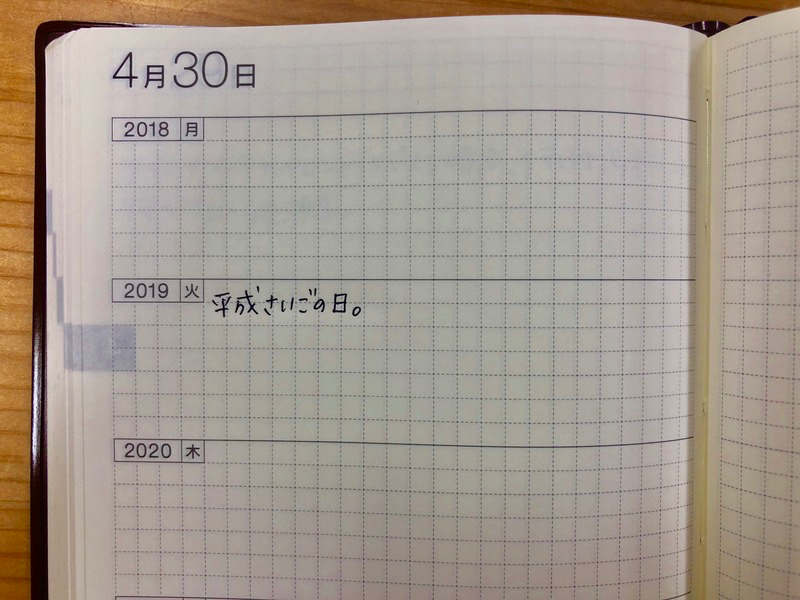 4月30日
2018 月
2019 火 平成さいごの日。
2020 木